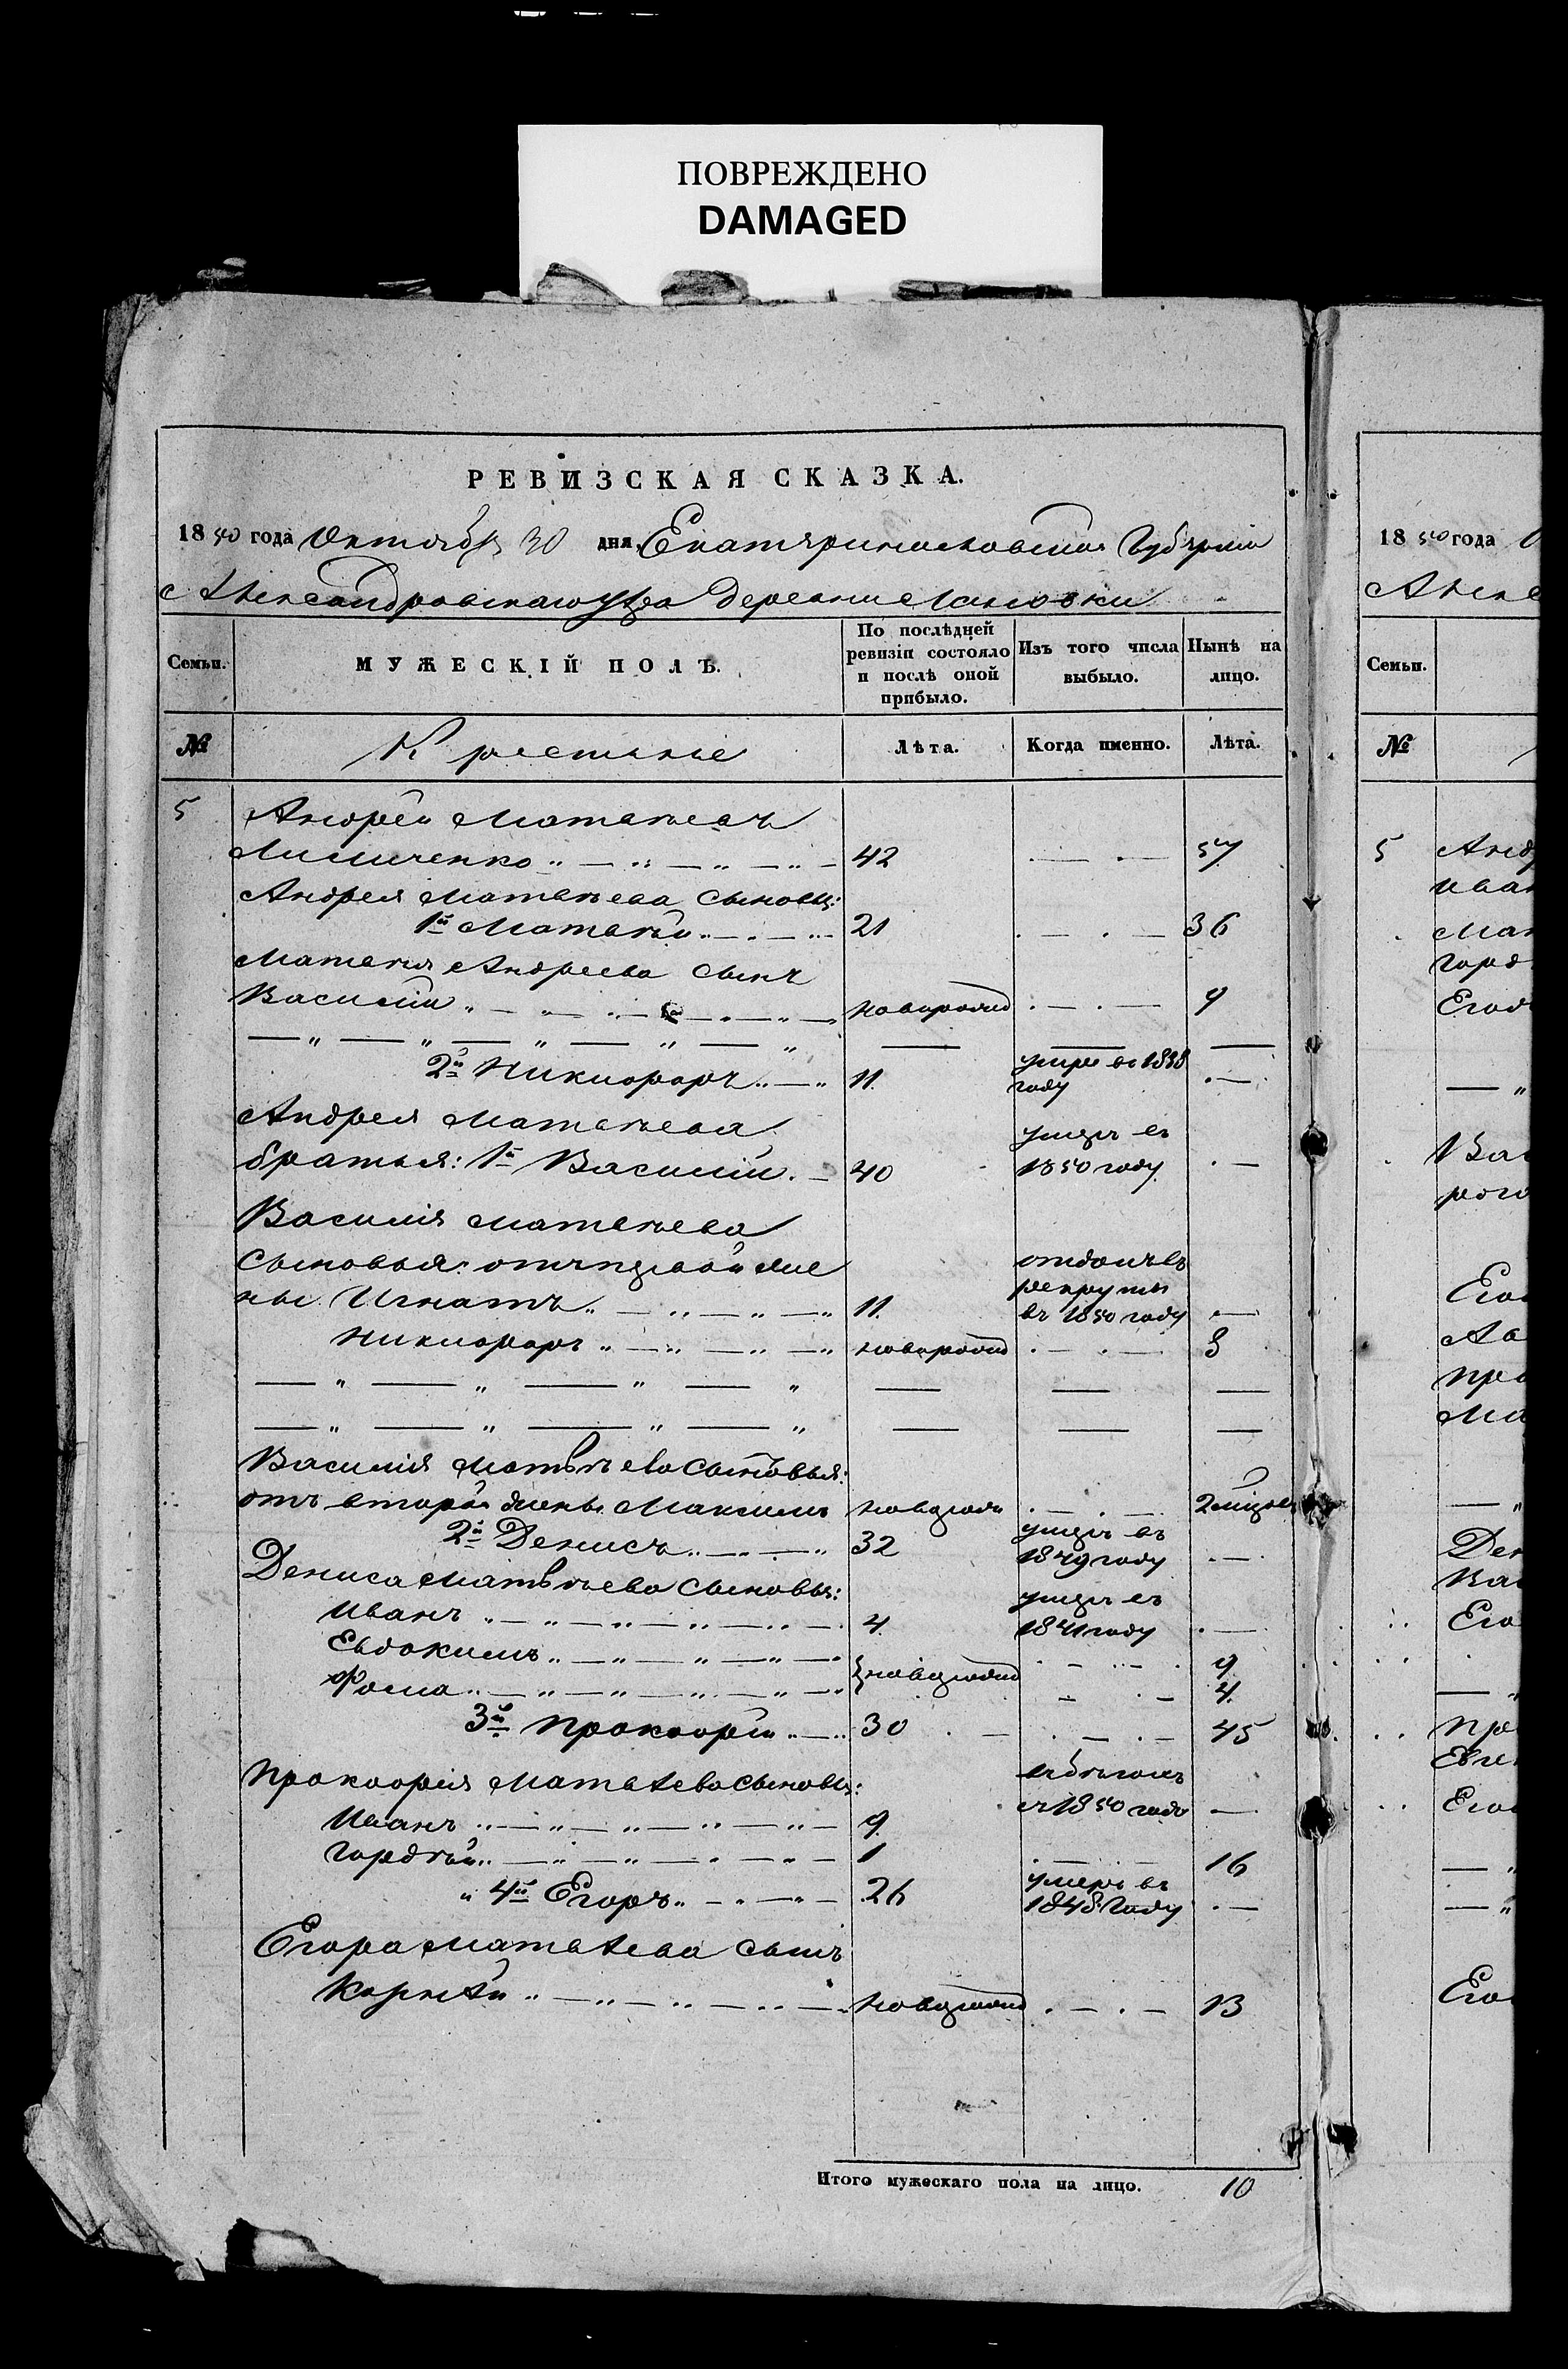 ПОВРЕЖДЕНО
DAMAGED
РЕВИЗСКАЯ СКАЗКА.
1850 года Октября 30 дня, Екатеринославской Губернии
Александровскаго уѣзда деревни
Семьи.
МУЖЕСКІЙ ПОЛЪ.
По послѣдней ревизіи состояло и послѣ оной прибыло.
Изъ того числа выбыло.
Нынѣ на лицо.
№
Крестьяне
Лѣта.
Когда именно.
Лѣта.
5 Андрей Матвѣевъ
42 57
Андрея Матвѣева сыновья:
1й Матвѣй 21 36
Матвѣя Андреева сынъ
Василій новорожд 9
2й Никифоръ 11 умре въ 1838 году
Андрея Матвѣева
братья: 1й Василій 40 умеръ въ 1850 году
Василія Матвѣева
сыновья: отъ первой же
ны Игнатъ 11 отданъ въ рекруты въ 1850 году
Никифоръ новорожд 8
Василія Матвѣева сыновья:
отъ второй жены Максимъ новорожд 2 мѣсяц
2й Денисъ 32 умеръ въ 1849 году
Дениса Матвѣева сыновья:
Иванъ 4 умеръ въ 1841 году
Евдокимъ новорожд 9
Фома 4
3й Прокофій 30 45
Прокофія Матвѣева сыновья:
Иванъ 9 въ бѣгахъ съ 1850 года
Гордѣй 1 16
4й Егоръ 26 умеръ въ 1848 году
Егора Матвѣева сынъ
Корнѣй новорожд 13
Итого мужескаго пола на лицо. 10
1850 года
Семьи.
№
5